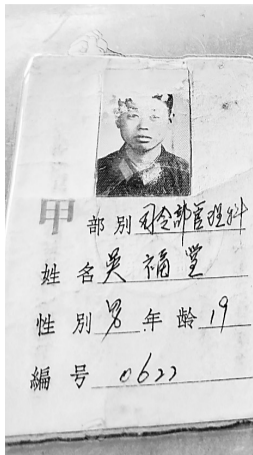 甲 部別 司令部管理科
姓名 吴福堂
性別 男 年龄 19
編号 0622